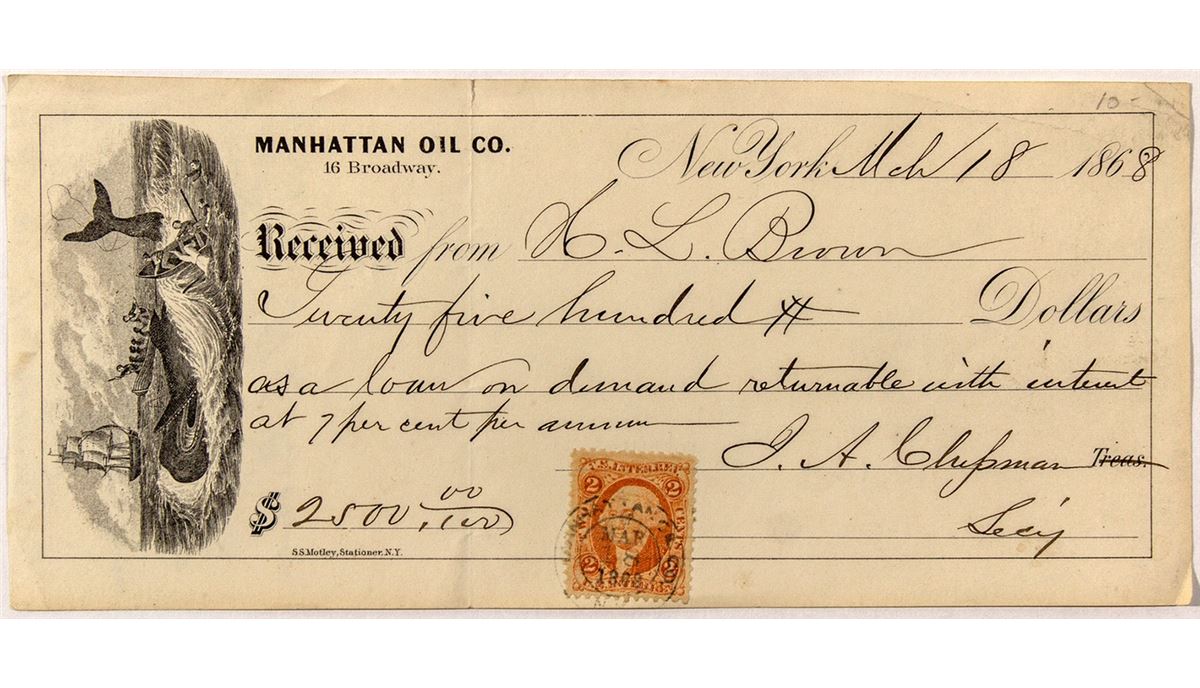 10-
MANHATTAN OIL CO.
16 Broadway.
New York Mch 18 1868
Received from H. L. Brown
Twenty five hundred
Dollars
as a loan on demand returnable with interest
at 7 per cent per annum
J. A. Chapman Treas.
Secy
$ 2500.00/100
S.S. Motley, Stationer. N.Y.
U.S. INTER. REV.
2 2
TWO CENTS
MAR
1868
2 2